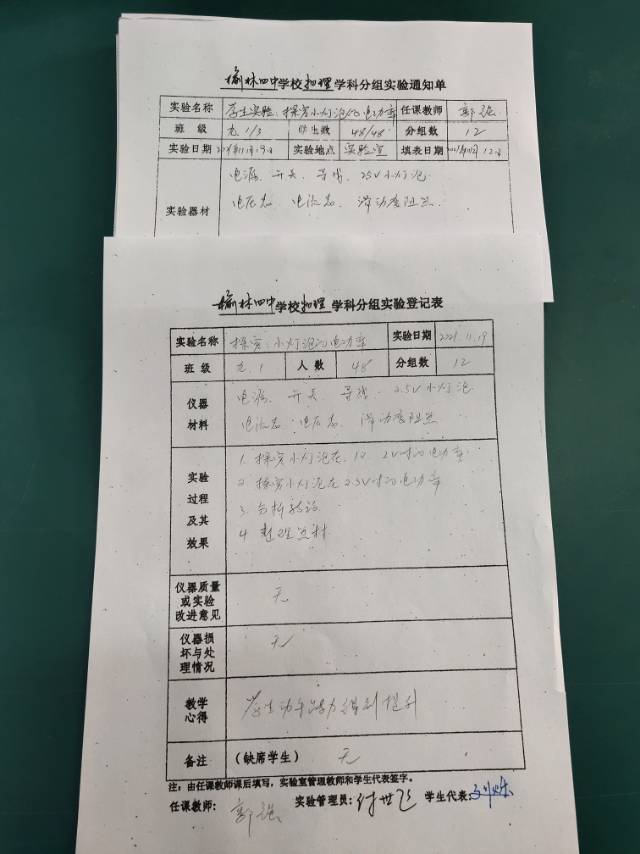 榆林四中学校物理学科分组实验通知单
实验名称 学生实验:探究小灯泡的电功率 任课教师 郭强
班级 九.1/3 学生数 48/48 分组数 12
实验日期 实验地点 实验室 填表日期
电源、开关、导线、2.5V小灯泡
实验器材 电压表、电流表、滑动变阻器
榆林四中学校物理学科分组实验登记表
实验名称 探究:小灯泡的电功率 实验日期 2021.11.19
班级 九.1 人数 48 分组数 12
仪器材料 电源、开关、导线、2.5V小灯泡
电流表、电压表、滑动变阻器
实验过程及其效果
1. 探究小灯泡在 2V时的电功率
2. 探究小灯泡在2.5V时的电功率
3. 分析
4. 整理器材
仪器质量或实验改进意见 无
仪器损坏与处理情况 无
教学心得 学生动手能力得到提升
备注 (缺席学生) 无
注:由任课教师课后填写,实验室管理教师和学生代表签字。
任课教师: 郭强 实验管理员:付世飞 学生代表: